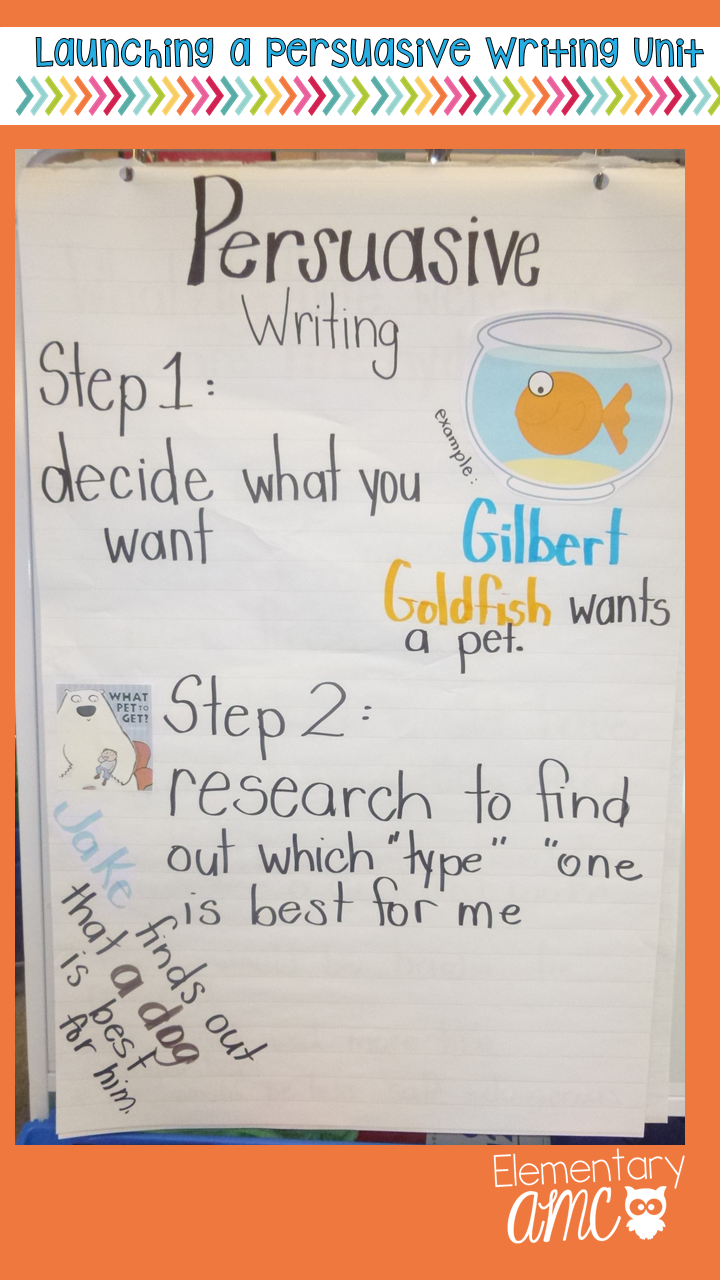 Launching a Persuasive Writing Unit
Persuasive
Writing
Step 1:
decide what you
want
example:
Gilbert
Goldfish wants
a pet.
WHAT
PET TO
GET?
Step 2:
research to find
out which "type" "one
is best for me
Jake finds out
that a dog
is best
for him.
Elementary
AMC